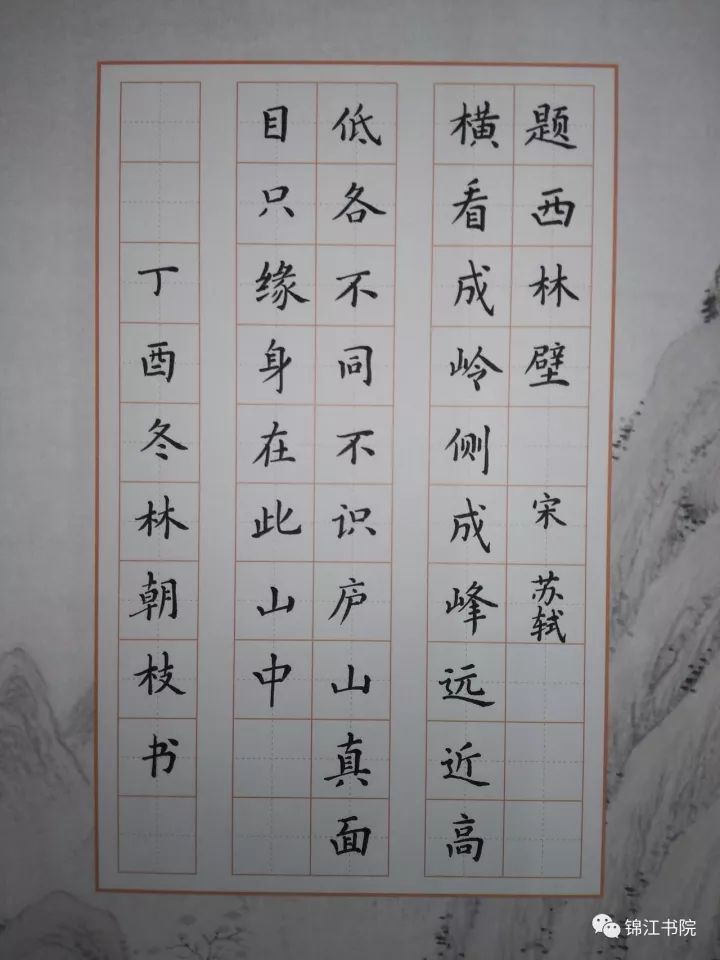 题西林壁 宋 苏轼
横看成岭侧成峰远近高
低各不同不识庐山真面
目只缘身在此山中
丁酉冬林朝枝书
锦江书院